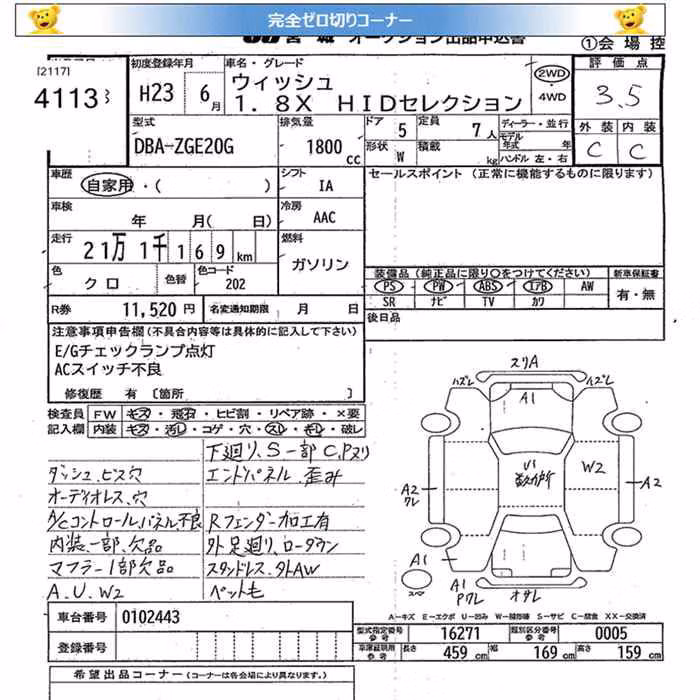 完全ゼロ切りコーナー
宮城 オークション出品申込書
①会場控
[2117]
4113
初度登録年月
H23 6月
車名・グレード
ウィッシュ
1.8X HIDセレクション
2WD
4WD
評価点
3.5
外装 内装
C C
型式
DBA-ZGE20G
排気量
1800cc
ドア 5
定員 7人
形状 W
積載 kg
ディーラー・並行
モデル年式 年式
ハンドル 左・右
車歴
自家用・( )
シフト
IA
セールスポイント (正常に機能するものに限ります)
車検
年 月( 日)
冷房
AAC
走行
21万1千169km
燃料
ガソリン
色
クロ
色替
色コード
202
装備品(純正品に限り○をつけてください)
新車保証書
PS PW ABS エアB AW
SR ナビ TV カワ
有・無
R券 11,520円
名変通知期限 月 日
後日品
注意事項申告欄(不具合内容等は具体的に記入して下さい)
E/Gチェックランプ点灯
ACスイッチ不良
修復歴 有 〔箇所 〕
検査員 FW キズ・飛石・ヒビ割・リペア跡・×要
記入欄 内装 キズ・汚レ・コゲ・穴・スレ・キレ・破レ
下廻り、S一部C、Pヌリ
ダッシュ、ビス穴 エンドパネル、歪み
オーディオレス、穴
A/Cコントロールパネル不良 Rフェンダー加工有
内装、一部、欠品 外足廻り、ローダウン
マフラー1部欠品 スタンドレス、外AW
A.U.W2 ペットも
スリA
ハズレ
ハズレ
A1
U1
数カ所
W2
A2
ワレ
A2
A1
A1
Pワレ
スペア
オサレ
A-キズ E-エクボ U-凹み W-補修跡 S-サビ C-腐食 XX-交換済
車台番号 0102443
登録番号
型式指定番号参考 16271
類別区分番号参考 0005
車庫証明用参考 長さ 459cm 幅 169cm 高さ 159cm
希望出品コーナー (コーナーは各会場により異なります。)